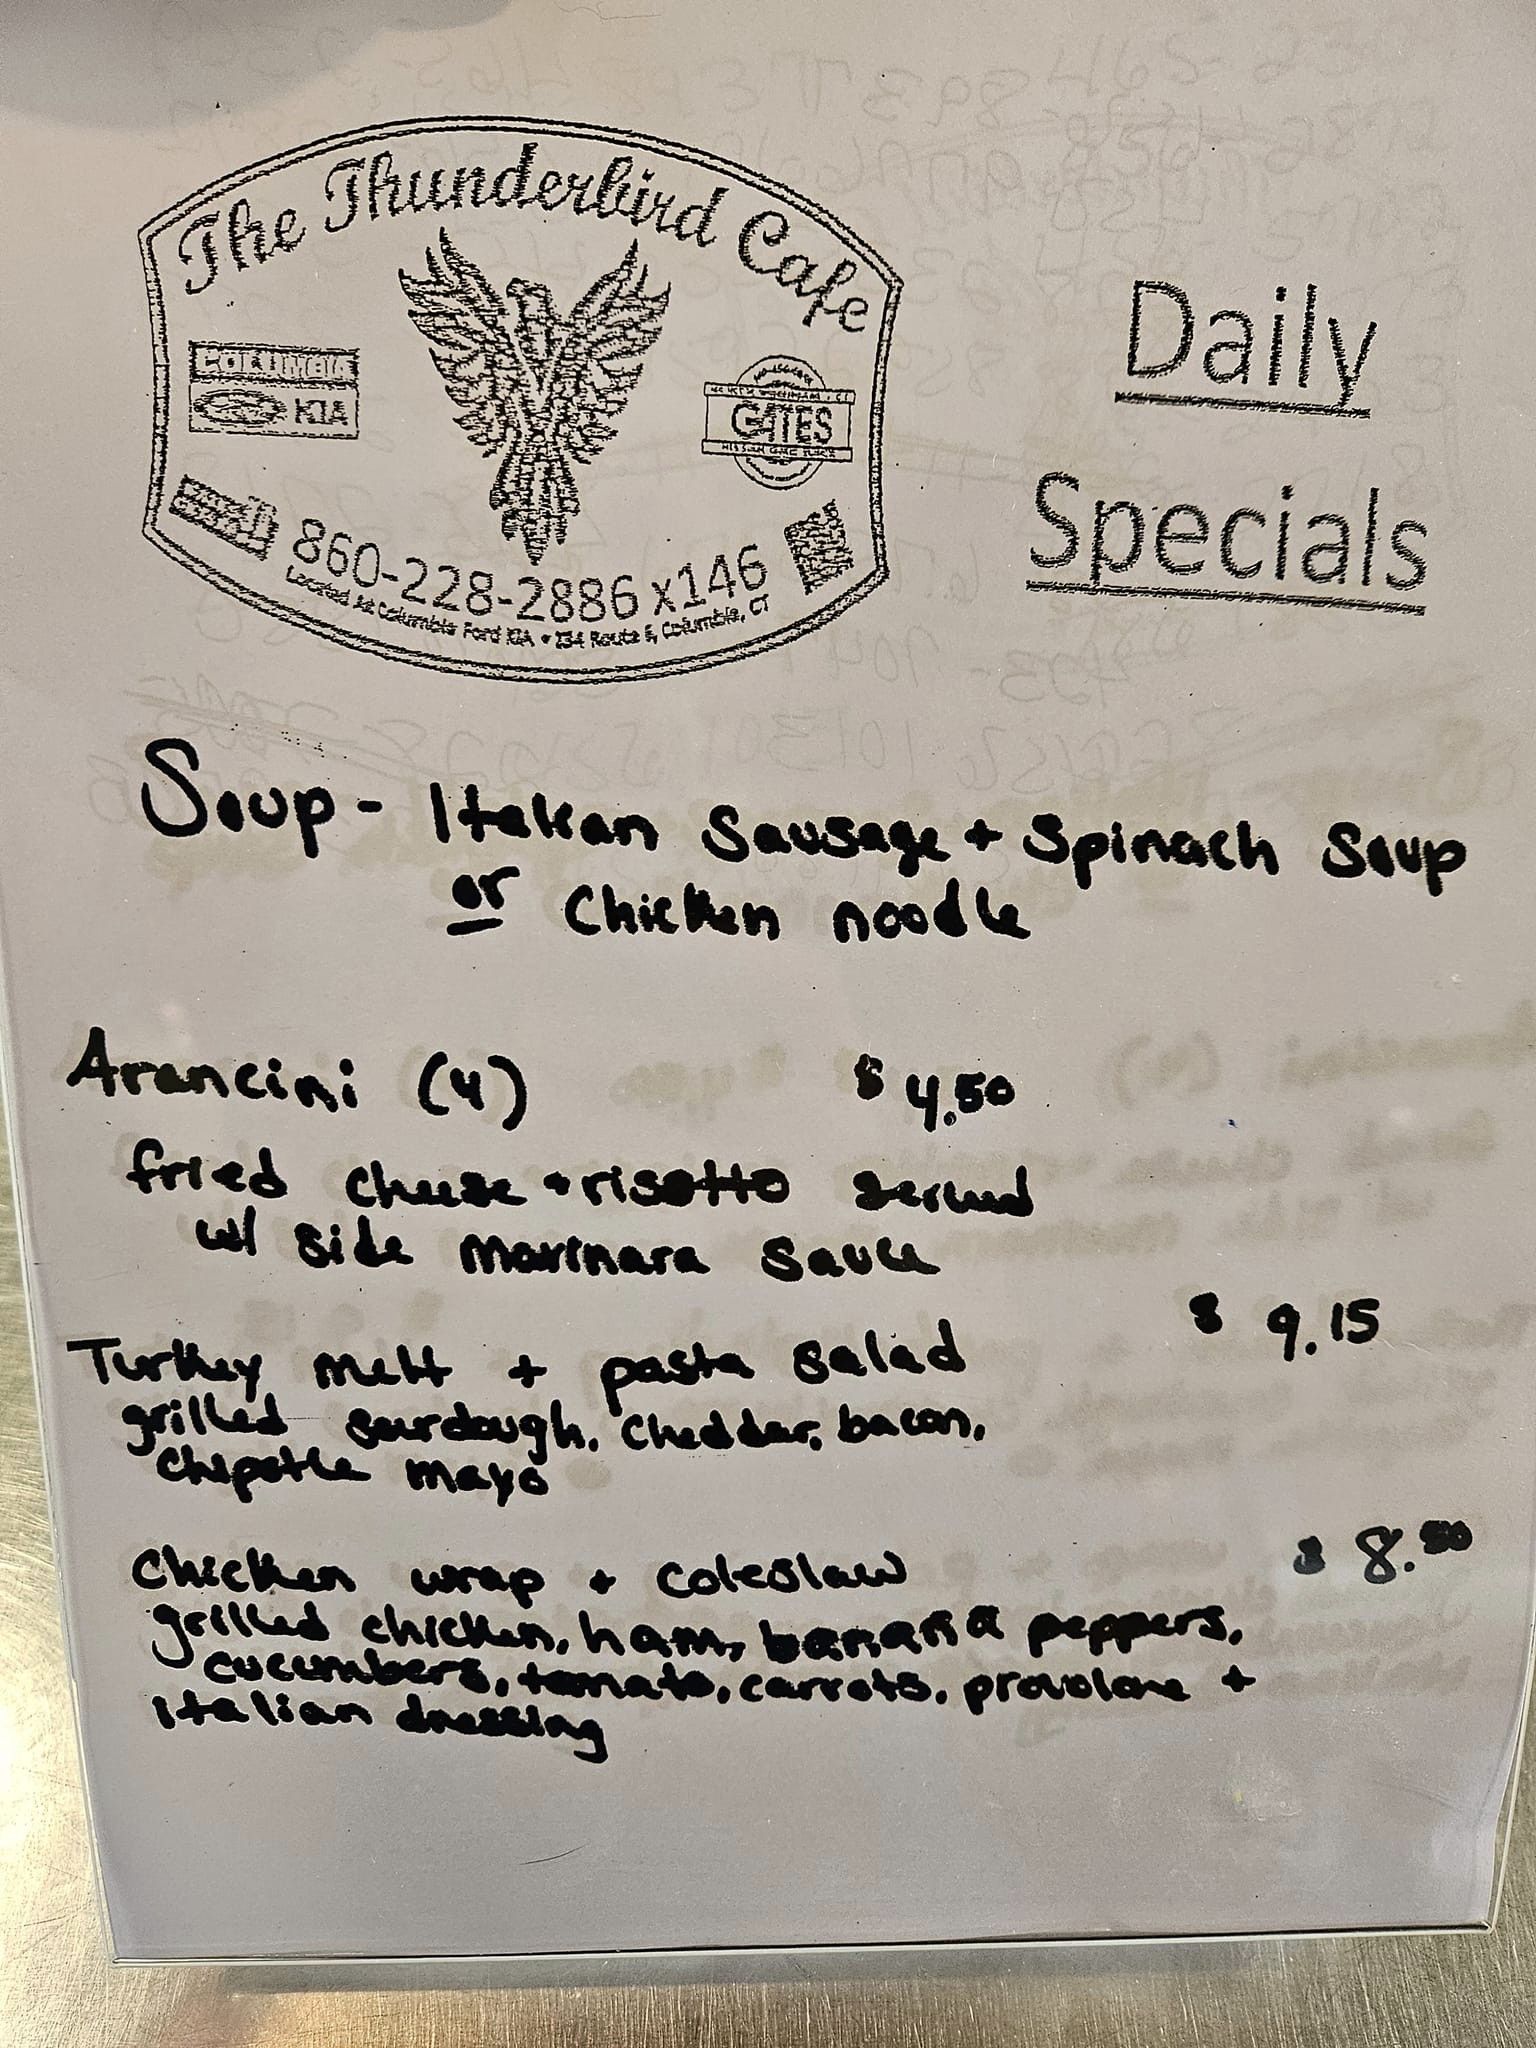 The Thunderbird Cafe
COLUMBIA
KIA
GATES
860-228-2886 x146
Located at Columbia Ford KIA • 234 Route 6, Columbia, CT
Daily
Specials
Soup - Italian Sausage + Spinach Soup
or Chicken noodle
Arancini (4) $4.50
fried cheese + risotto served
w/ side marinara sauce
Turkey melt + pasta salad $9.15
grilled sourdough, cheddar, bacon,
chipotle mayo
Chicken wrap + coleslaw $8.50
grilled chicken, ham, banana peppers,
cucumbers, tomato, carrots, provolone +
Italian dressing